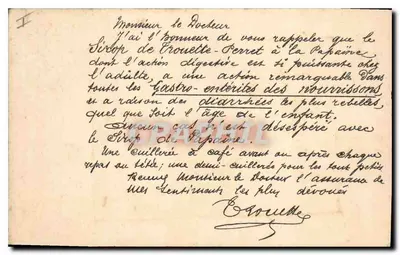 I
Monsieur le Docteur
J'ai l'honneur de vous rappeler que le
Sirop de Trouette-Perret à la Papaïne
dont l'action digestive est si puissante chez
l'adulte, a une action remarquable dans
toutes les Gastro-entérites des nourrissons
et a raison des diarrhées les plus rebelles,
quel que soit l'âge de l'enfant,
Aucun cas n'est désespéré avec
le Sirop de Papaïne.
Une cuillerée à café avant ou après chaque
repas ou tétée; une demi-cuillerée pour les tout petits
Monsieur le Docteur l'assurance de
mes sentiments les plus dévoués
Trouette